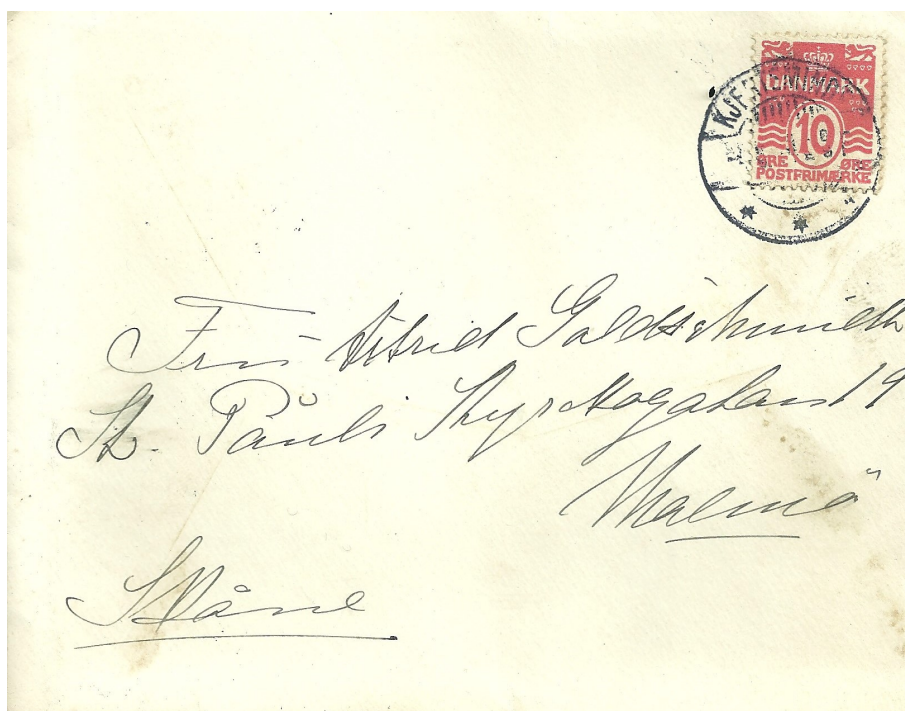 DANMARK
10
ØRE ØRE
POSTFRIMÆRKE
Fru Astrid Goldschmidt
St. Pauli Kyrkogatan 19
Malmö
Skåne